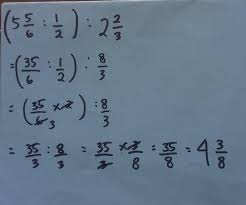 (5 5/6 : 1/2) : 2 2/3
= (35/6 : 1/2) : 8/3
= (35/6 3 × 2) : 8/3
= 35/3 : 8/3 = 35/3 × 3/8 = 35/8 = 4 3/8